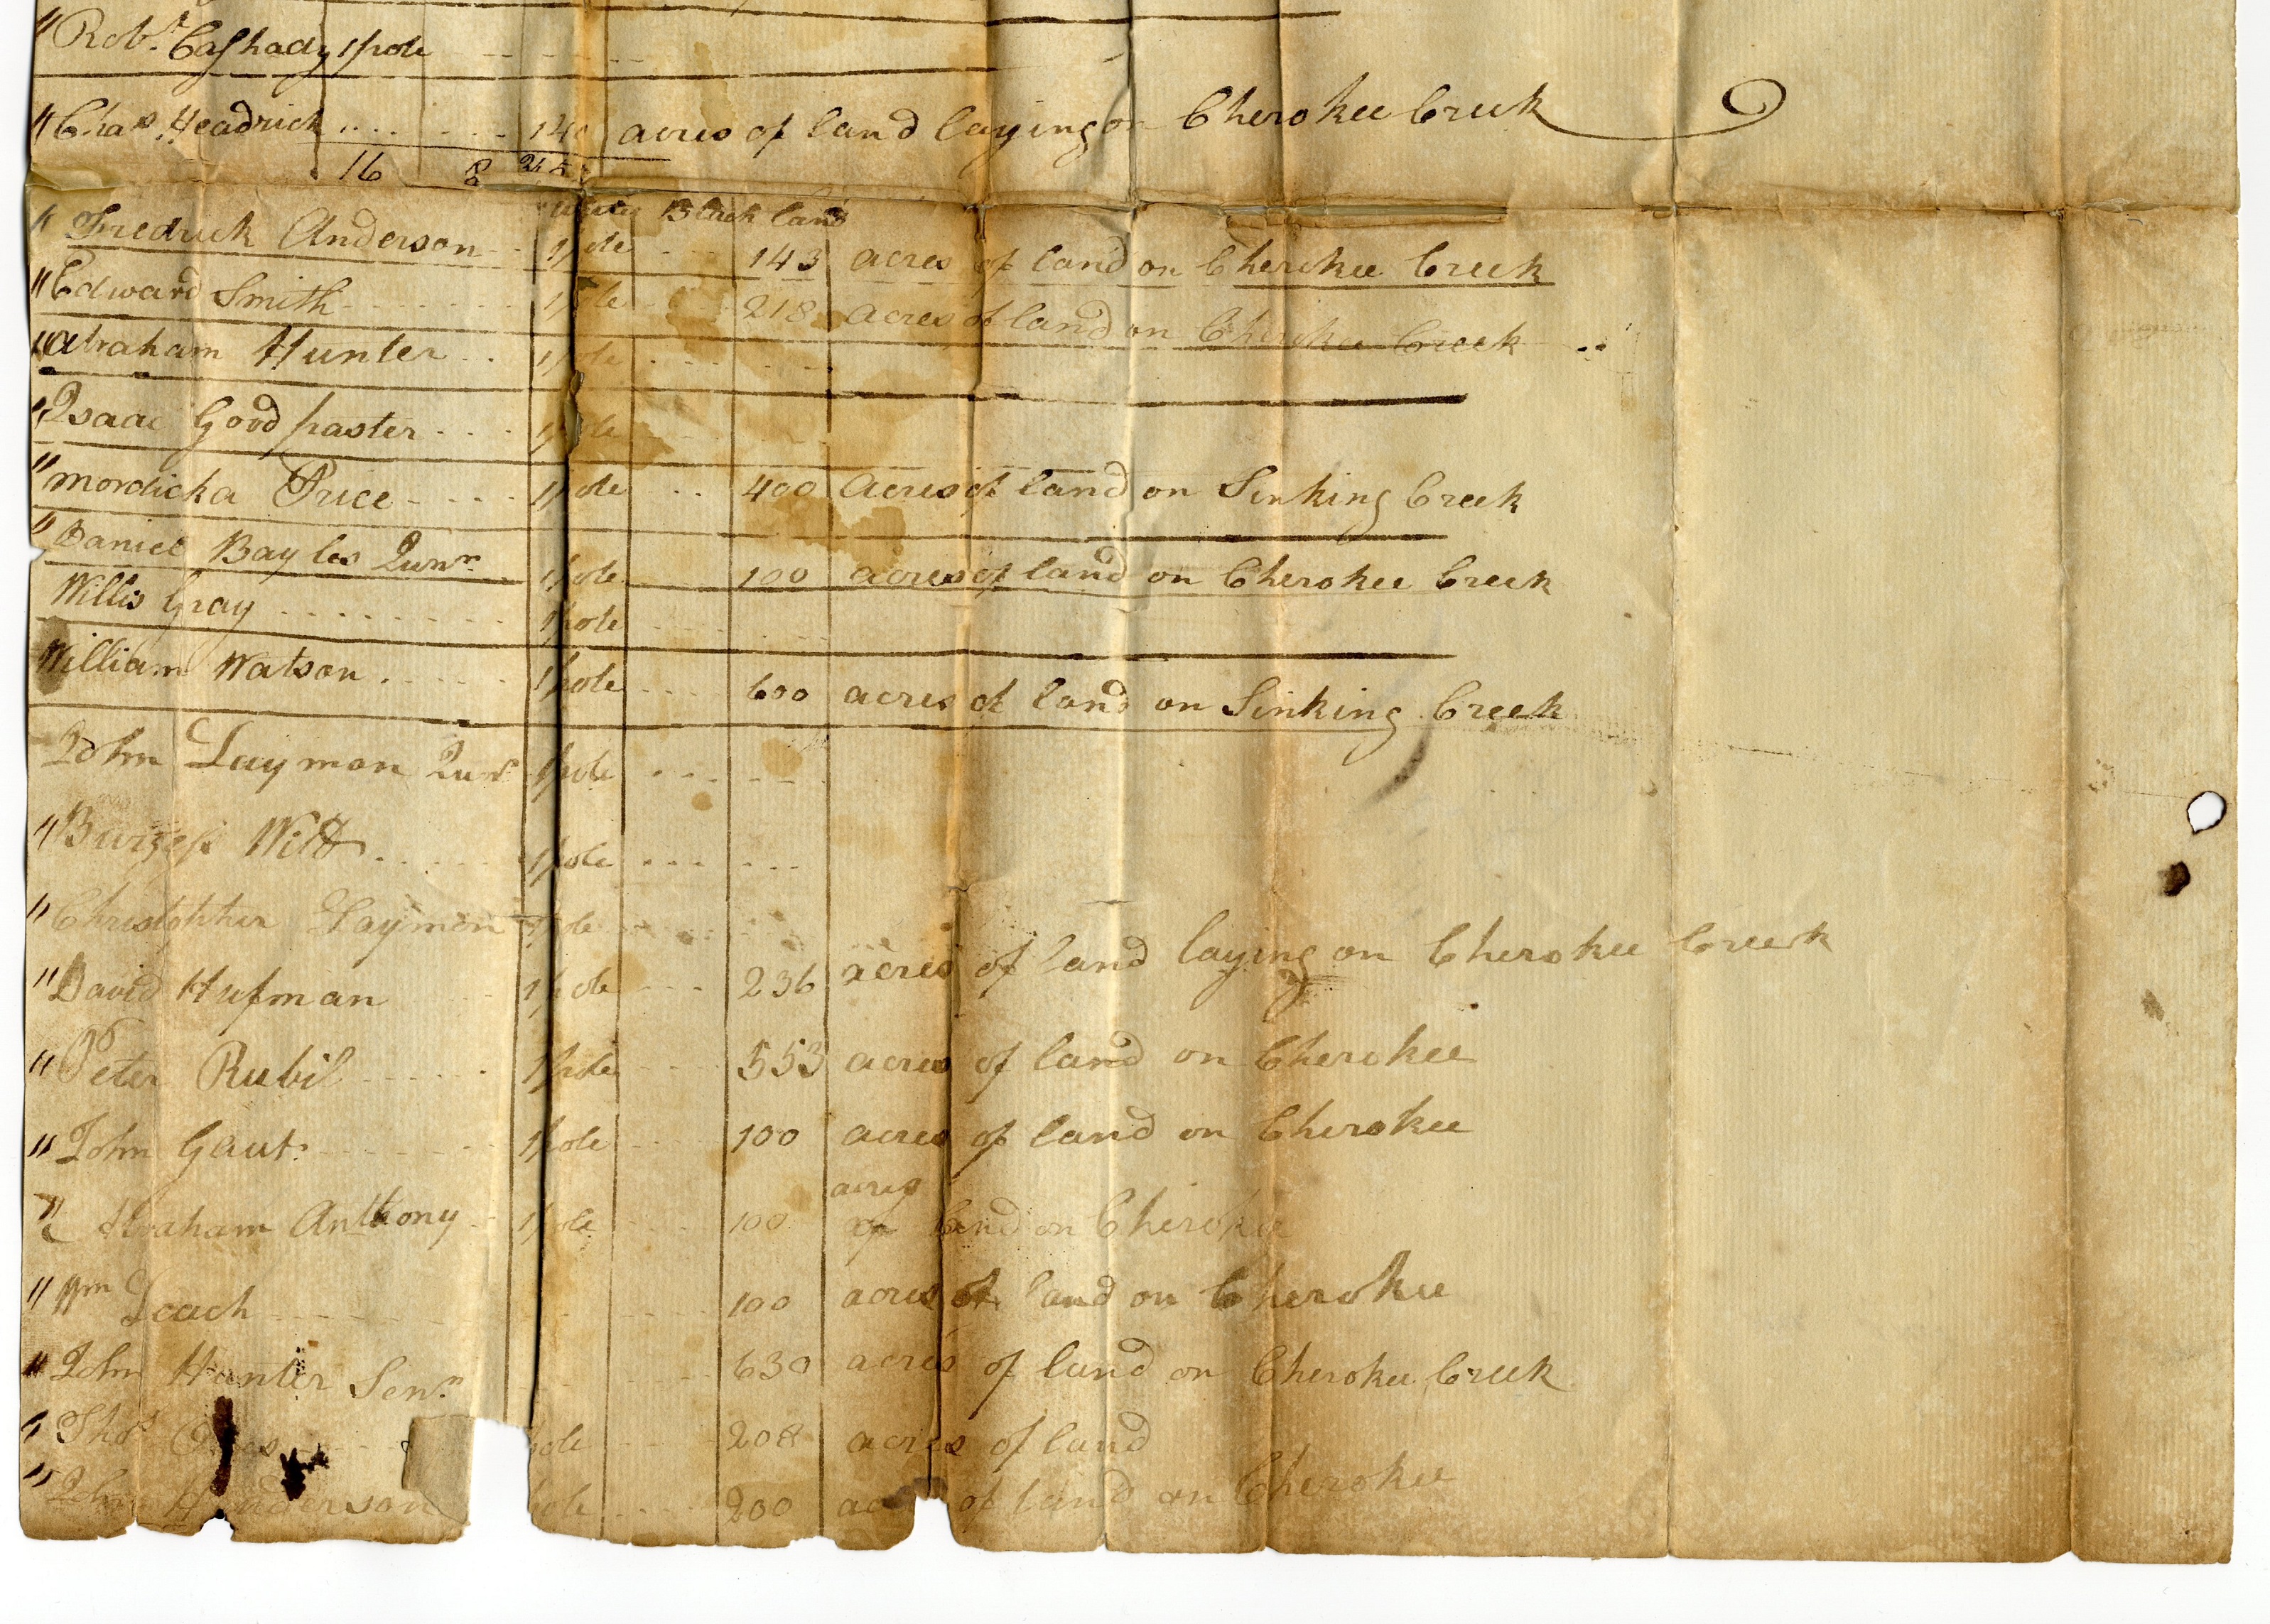 " Robt. Cashady 1 pole
" Chas. Headrick 140 acres of land laying on Cherokee Creek
16 8
white Black land
" Fredrick Anderson 1 pole 143 acres of land on Cherokee Creek
" Edward Smith 1 pole 218 acres of land on Cherokee Creek
" Abraham Hunter 1 pole
" Isaac Goodpaster 1 pole
" Mordicka Price 1 pole 400 acres of land on Sinking Creek
" Daniel Bayles Junr 1 pole 100 acres of land on Cherokee Creek
Willis Gray 1 pole
William Watson 1 pole 600 acres of land on Sinking Creek
John Laymon Junr 1 pole
" Burgess Witt 1 pole
" Christopher Laymon 1 pole
" David Hufman 1 pole 236 acres of land laying on Cherokee Creek
" Peter Rubil 1 pole 553 acres of land on Cherokee
" John Gaut 1 pole 100 acres of land on Cherokee
" Abraham Anthony 1 pole 100 acres of land on Cherokee
" Wm Leach 100 acres of land on Cherokee
" John Hunter Senr 630 acres of land on Cherokee Creek
" Thos pole 208 acres of land
" John Henderson pole 200 acres of land on Cherokee